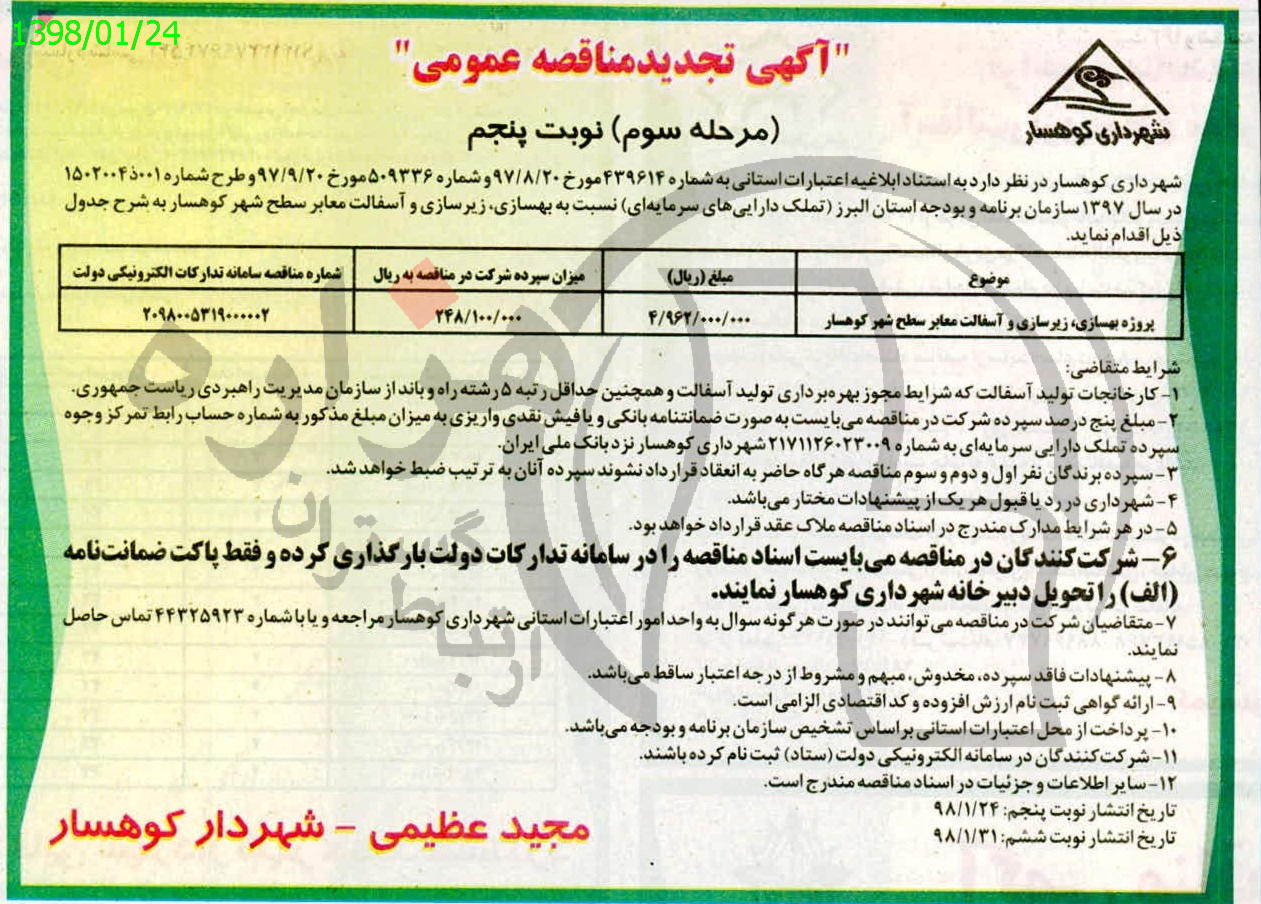 1398/01/24
"آگهی تجدیدمناقصه عمومی"
(مرحله سوم) نوبت پنجم
شهرداری کوهسار
شهرداری کوهسار در نظر دارد به استناد ابلاغیه اعتبارات استانی به شماره ۴۳۹۶۱۴ مورخ ۹۷/۸/۲۰ و شماره ۵۰۹۳۳۶ مورخ ۹۷/۹/۲۰ و طرح شماره ۱۵۰۲۰۰۴ذ۰۰۱
در سال ۱۳۹۷ سازمان برنامه و بودجه استان البرز (تملک دارایی‌های سرمایه‌ای) نسبت به بهسازی، زیرسازی و آسفالت معابر سطح شهر کوهسار به شرح جدول
ذیل اقدام نماید.
موضوع مبلغ (ریال) میزان سپرده شرکت در مناقصه به ریال شماره مناقصه سامانه تدارکات الکترونیکی دولت
پروژه بهسازی، زیرسازی و آسفالت معابر سطح شهر کوهسار ۴/۹۶۲/۰۰۰/۰۰۰ ۲۴۸/۱۰۰/۰۰۰ ۲۰۹۸۰۰۵۳۱۹۰۰۰۰۰۲
شرایط متقاضی:
۱- کارخانجات تولید آسفالت که شرایط مجوز بهره‌برداری تولید آسفالت و همچنین حداقل رتبه ۵ رشته راه و باند از سازمان مدیریت راهبردی ریاست جمهوری.
۲- مبلغ پنج درصد سپرده شرکت در مناقصه می‌بایست به صورت ضمانتنامه بانکی و یا فیش نقدی واریزی به میزان مبلغ مذکور به شماره حساب رابط تمرکز وجوه
سپرده تملک دارایی سرمایه‌ای به شماره ۲۱۷۱۱۲۶۰۲۳۰۰۹ شهرداری کوهسار نزد بانک ملی ایران.
۳- سپرده برندگان نفر اول و دوم و سوم مناقصه هرگاه حاضر به انعقاد قرارداد نشوند سپرده آنان به ترتیب ضبط خواهد شد.
۴- شهرداری در رد یا قبول هر یک از پیشنهادات مختار می‌باشد.
۵- در هر شرایط مدارک مندرج در اسناد مناقصه ملاک عقد قرارداد خواهد بود.
۶- شرکت‌کنندگان در مناقصه می‌بایست اسناد مناقصه را در سامانه تدارکات دولت بارگذاری کرده و فقط پاکت ضمانت‌نامه
(الف) را تحویل دبیرخانه شهرداری کوهسار نمایند.
۷- متقاضیان شرکت در مناقصه می‌توانند در صورت هرگونه سوال به واحد امور اعتبارات استانی شهرداری کوهسار مراجعه و یا با شماره ۴۴۳۲۵۹۲۳ تماس حاصل
نمایند.
۸- پیشنهادات فاقد سپرده، مخدوش، مبهم و مشروط از درجه اعتبار ساقط می‌باشد.
۹- ارائه گواهی ثبت نام ارزش افزوده و کد اقتصادی الزامی است.
۱۰- پرداخت از محل اعتبارات استانی براساس تشخیص سازمان برنامه و بودجه می‌باشد.
۱۱- شرکت‌کنندگان در سامانه الکترونیکی دولت (ستاد) ثبت نام کرده باشند.
۱۲- سایر اطلاعات و جزئیات در اسناد مناقصه مندرج است.
تاریخ انتشار نوبت پنجم: ۹۸/۱/۲۴
تاریخ انتشار نوبت ششم: ۹۸/۱/۳۱
مجید عظیمی - شهردار کوهسار
هزاره
ارتباط گستران